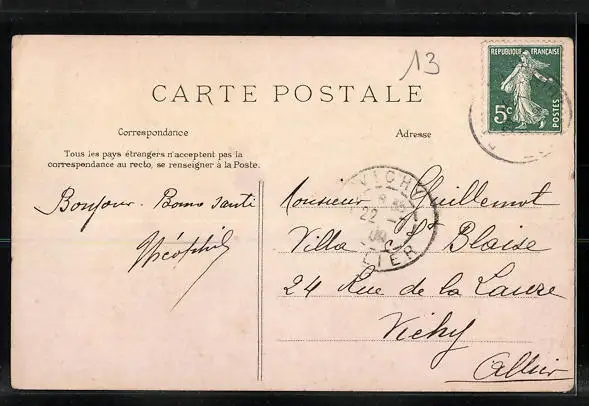 13
CARTE POSTALE
RÉPUBLIQUE FRANÇAISE
5c
POSTES
Correspondance
Adresse
Tous les pays étrangers n'acceptent pas la
correspondance au recto, se renseigner à la Poste.
Bonjour. Bonne santé
Théophile
Monsieur Guillemot
Villa St Blaise
24 Rue de la
Vichy
Allier
VICHY
22
ALLIER